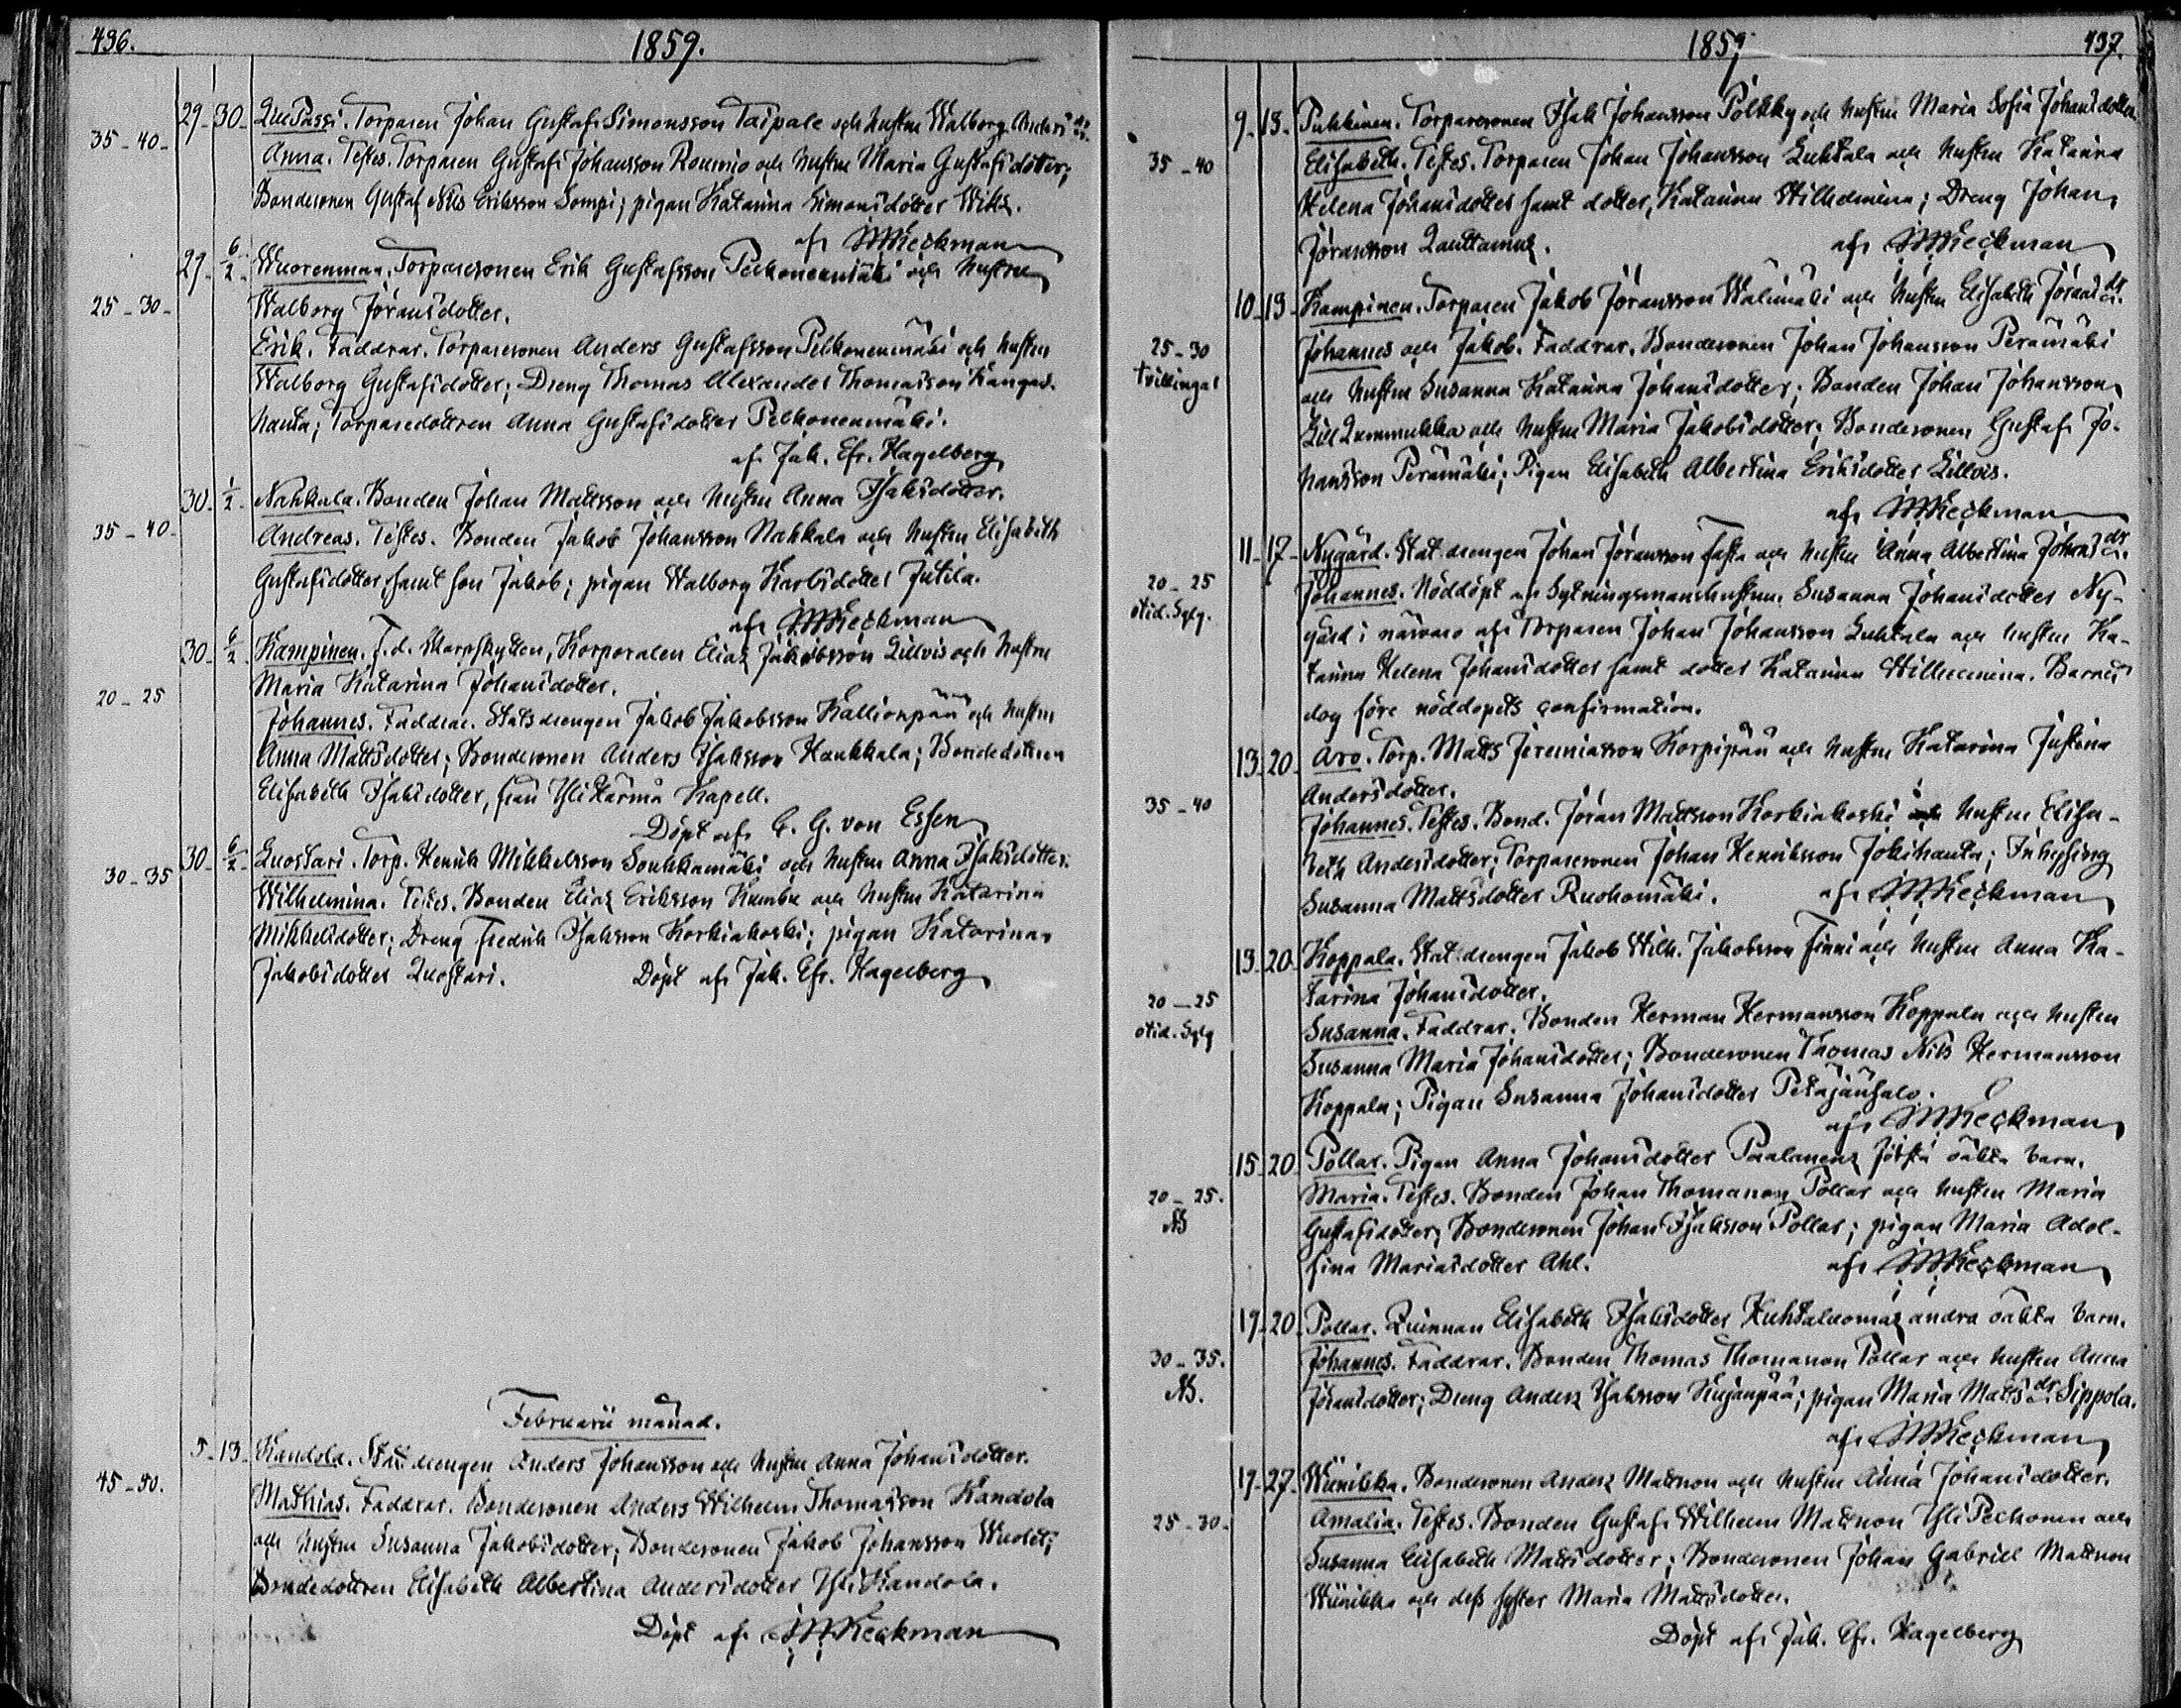 436.
1859.
29 - 30 - Lill Passi. Torparen Johan Gustaf Simonsson Taipale och hustru Walborg Anders dr.
35 - 40 -
Anna. Testes. Torparen Gustaf Johansson Roumio och hustru Maria Gustafsdotter;
Bondesonen Gustaf Nils Eriksson Sompi; pigan Katarina Simonsdotter Wiks.
af Keckman
29 - 6/2 - Wuorenmaa. Torparesonen Erik Gustafsson Pelkonenmäki och hustru
25 - 30 -
Walborg Jöransdotter.
Erik. Faddrar. Torparesonen Anders Gustafsson Pelkonenmäki och hustru
Walborg Gustafsdotter; Dreng Thomas Alexander Thomasson Kangas-
hauta; Torparedottren Anna Gustafsdotter Pelkonenmäki.
af Jak. Efr. Hagelberg
30 - 1/2 - Nahkala. Bonden Johan Mattsson och hustru Anna Isaksdotter.
35 - 40 -
Andreas. Testes. Bonden Jakob Johansson Nahkala och hustru Elisabeth
Gustafsdotter, samt son Jakob; pigan Walborg Karlsdotter Jutila.
af Keckman
30 - 6/2 Kampinen. f.d. Skarpskytten, Korporalen Elias Jakobsson Lillvis och hustru
20 - 25
Maria Katarina Johansdotter.
Johannes. Faddrar. Statsdrengen Jakob Jakobsson Kallionpää och hustru
Anna Mattsdotter; Bondesonen Anders Isaksson Haukkala; Bondedottren
Elisabeth Isaksdotter, från Ylihärmä Kapell.
Döpt af C. G. von Essen
30 - 6/2 - Luostari. Torp. Henrik Mikkelsson Soukkamäki och hustru Anna Isaksdotter.
30 - 35
Wilhelmina. Testes. Bonden Elias Eriksson Kumbu och hustru Katarina
Mikkelsdotter; Dreng Fredrik Isaksson Korkiakoski; pigan Katarina
Jakobsdotter Luostari. Döpt af Jak. Efr. Hagelberg
Februarii månad.
5 - 13 - Kandola. Statdrengen Anders Johansson och hustru Anna Johansdotter.
45 - 50.
Mathias. Faddrar. Bondesonen Anders Wilhelm Thomasson Kandola
och hustru Susanna Jakobsdotter; Bondesonen Jakob Johansson Wuolet;
Bondedottren Elisabeth Albertina Andersdotter Yli Kandola.
Döpt af Keckman
1859
437.
9 - 13 - Puhkinen. Torparesonen Isak Johansson Pölkky och hustru Maria Sofia Johansdotter.
35 - 40
Elisabeth. Testes. Torparen Johan Johansson Luhtala och hustru Katarina
Helena Johansdotter samt dotter, Katarina Wilhelmina; Dreng Johan
Jöransson Lauttamus. af Keckman
10 - 13 - Kampinen. Torparen Jakob Jöransson Wälimäki och hustru Elisabeth Jörans dr.
25 - 30
tvillingar
Johannes och Jakob. Faddrar. Bondesonen Johan Johansson Perämäki
och hustru Susanna Katarina Johansdotter; Bonden Johan Johansson
Lill Lummukka och hustru Maria Jakobsdotter; Bondesonen Gustaf Jo-
hansson Perämäki; Pigan Elisabeth Albertina Eriksdotter Lillvis.
af Keckman
11 - 17 - Nygård. Statdrengen Johan Jöransson Fasta och hustru Anna Albertina Johans dr.
20 - 25
otid. Sglg.
Johannes. Nöddöpt af Sytningsmanshustrun. Susanna Johansdotter Ny-
gård i närvaro af Torparen Johan Johansson Luhtala och hustru Ka-
tarina Helena Johansdotter samt dotter Katarina Wilhelmina. Barnet
dog före nöddopets confirmation.
13 - 20 - Aro. Torp. Matts Jeremiasson Korpipää och hustru Katarina Justina
35 - 40
Andersdotter.
Johannes. Testes. Bond. Jöran Mattsson Korkiakoski och hustru Elisa-
beth Andersdotter; Torparesonen Johan Henriksson Jokihauta; Inhysing
Susanna Mattsdotter Ruohomäki. af Keckman
13 - 20 - Koppala. Statdrengen Jakob Wilh. Jakobsson Finni och hustru Anna Ka-
20 - 25
otid. Sglg
tarina Johansdotter.
Susanna. Faddrar. Bonden Herman Hermansson Koppala och hustru
Susanna Maria Johansdotter; Bondesonen Thomas Nils Hermansson
Koppala; Pigan Susanna Johansdotter Petäjänsalo.
af Keckman
15 - 20 Pollar. Pigan Anna Johansdotter Paalanens första oäkta barn.
20 - 25.
NB
Maria. Testes. Bonden Johan Thomasson Pollar och hustru Maria
Gustafsdotter; Bondesonen Johan Isaksson Pollar; pigan Maria Adol-
fina Mariasdotter Ahl. af Keckman
19 - 20 - Pollar. Quinnan Elisabeth Isaksdotter Kuhtaluomas andra oäkta barn.
30 - 35.
NB.
Johannes. Faddrar. Bonden Thomas Thomasson Pollar och hustru Anna
Jöransdotter; Dreng Anders Isaksson Kujanpää; pigan Maria Matts dr. Sippola.
af Keckman
17 - 27 - Wiinikka. Bondesonen Anders Mattsson och hustru Anna Johansdotter.
25 - 30 -
Amalia. Testes. Bonden Gustaf Wilhelm Mattsson Yli Pechonen och
Susanna Elisabeth Mattsdotter; Bondesonen Johan Gabriel Mattsson
Wiinikka och dess syster Maria Mattsdotter.
Döpt af Jak. Efr. Hagelberg